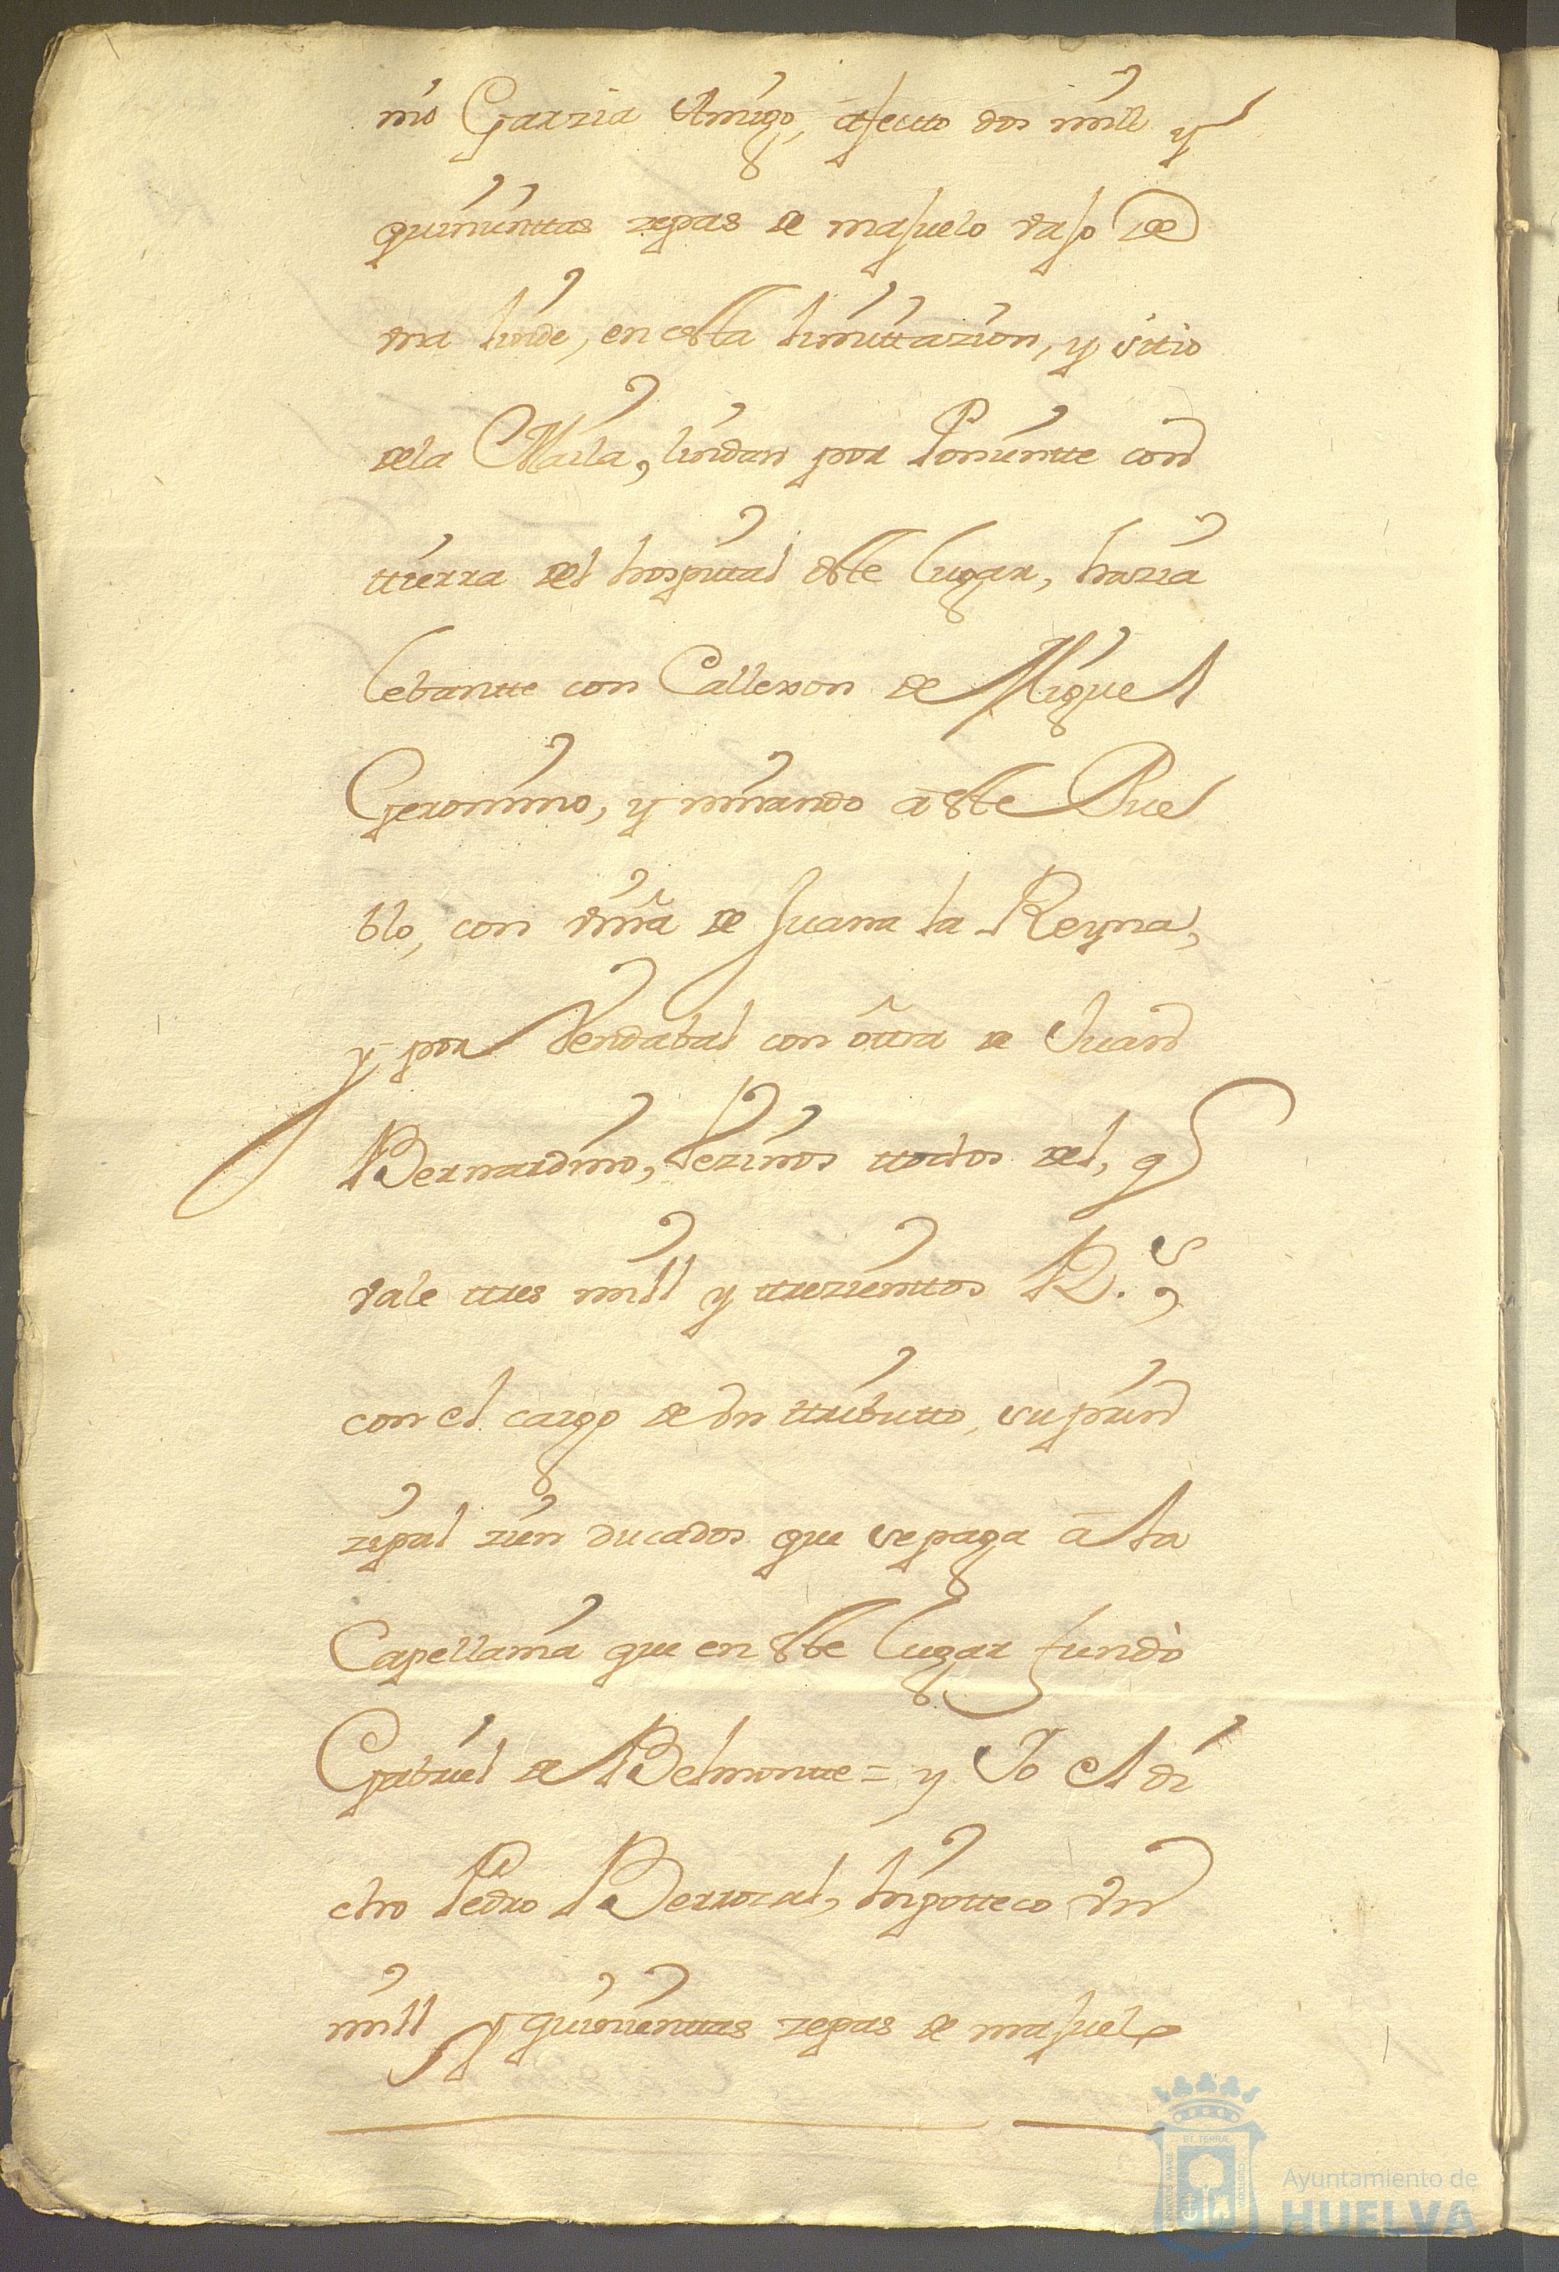 nio Garzia Amigo, afecto dos mill y
quinienttas zepas de majuelo vajo de
vna linde, en esta limittazion, y sitio
dela Maila, lindan por Ponientte con
ttierra del hospittal este lugar, hazia
lebantte con Callexon de Miguel
Geronimo, y mirando a este Pue
blo, con viña de Juana la Reyna,
y por Vendabal con ottra de Juan
Bernardino, Vezinos ttodos del, q
vale ttres mill y ttrezienttos R.s
con el cargo de vn ttributto, su prin
zipal zien ducados que se paga a la
Capellania que en este lugar fundò
Gabriel de Belmontte = y Yo el di
cho Pedro Berrocal, hipotteco vn
mill y quinienttas zepas de majuelo
Ayuntamiento de
HUELVA